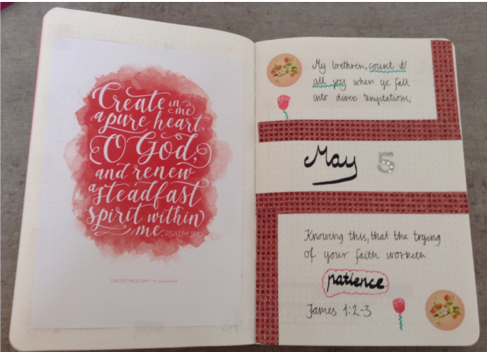 Create in me
a pure heart,
O God,
and renew
a steadfast
spirit within
me
My brethren, count it
all joy when ye fall
into divers temptations;
May 5
Knowing this, that the trying
of your faith worketh
patience
James 1:2-3